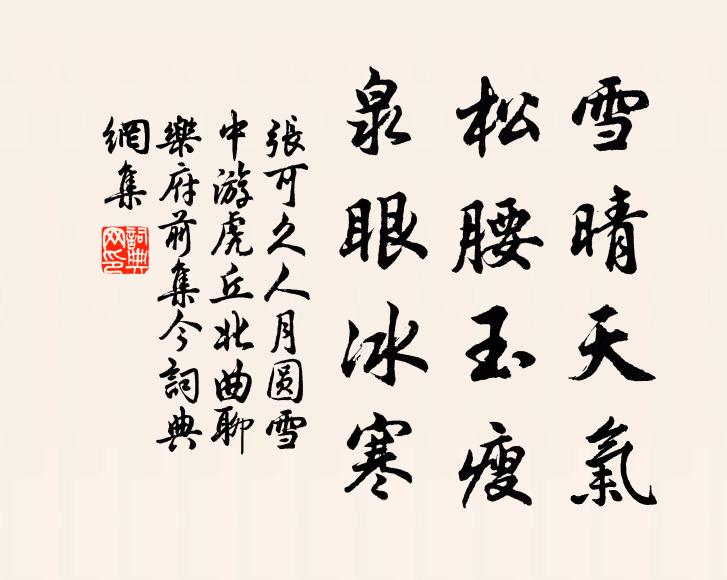 雪晴天氣
松腰玉瘦
泉眼冰寒
張可久人月圓雪
中游虎丘北曲聊
樂府前集今詞典
網集
詞典網印